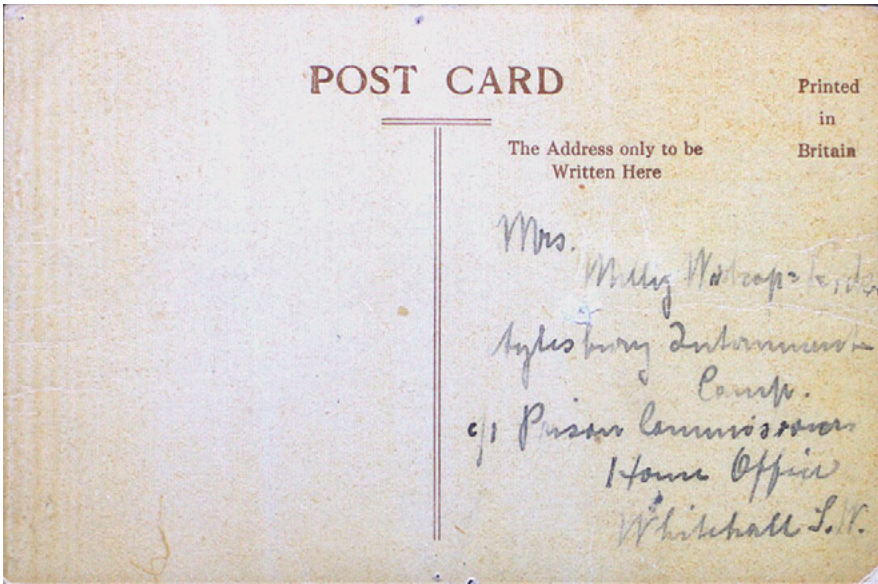 POST CARD
Printed
in
Britain
The Address only to be
Written Here
Mrs.
Aylesbury Internment
Camp.
c/o Prison Commissioners
Home Office
Whitehall S.W.